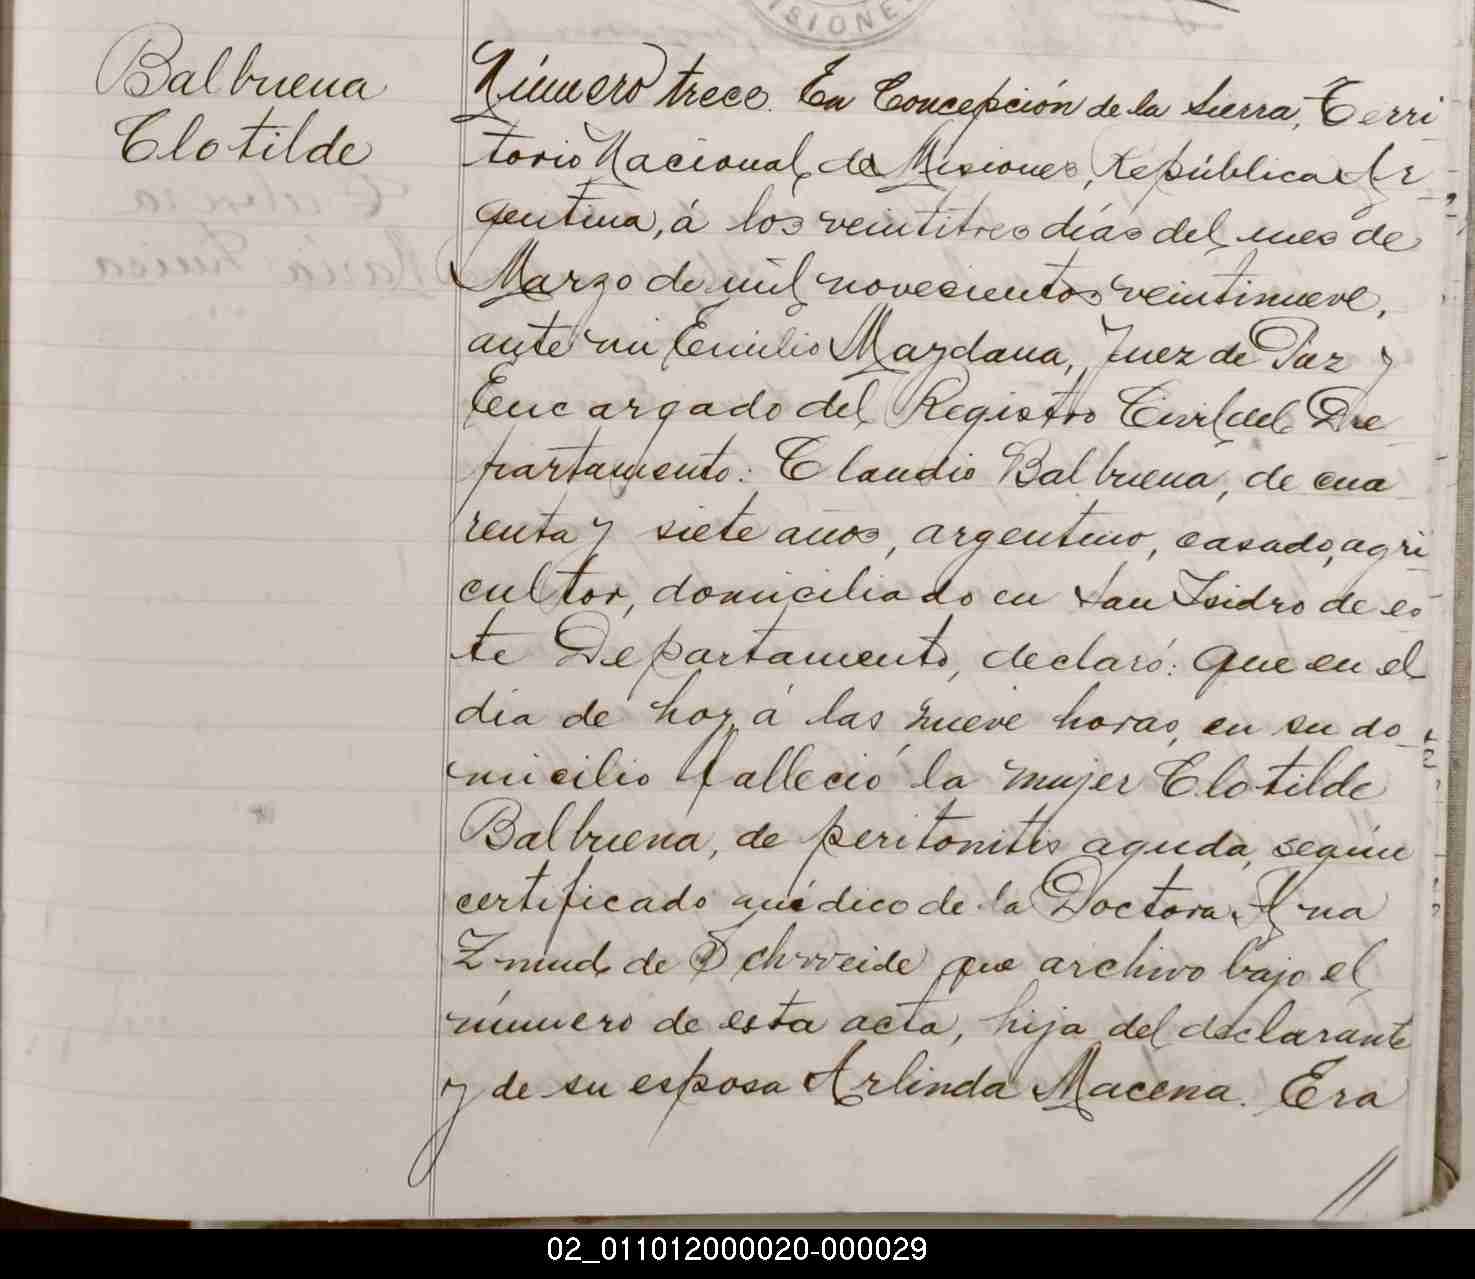 ISIONE
Balbuena
Clotilde
Número trece. En Concepción de la Sierra, Terri
torio Nacional de Misiones, República Ar-
gentina, á los veintitres días del mes de
Marzo de mil novecientos veintinueve,
ante mi Emilio Maydana, Juez de Paz y
Encargado del Registro Civil del De-
partamento: Claudio Balbuena, de cua
renta y siete años, argentino, casado, agri
cultor, domiciliado en San Isidro de es-
te Departamento, declaró: Que en el
día de hoy, á las nueve horas, en su do-
micilio falleció la mujer Clotilde
Balbuena, de peritonitis aguda, según
certificado médico de la Doctora Ana
Zmud de Schweide que archivo bajo el
número de esta acta, hija del declarante
y de su esposa Arlinda Macena. Era
02_011012000020-000029